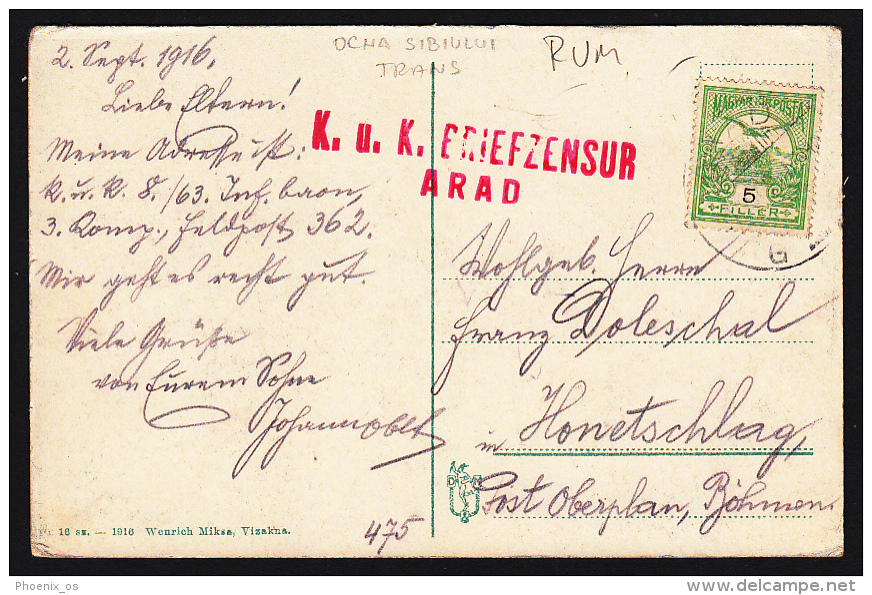 2. Sept. 1916.
Liebe Eltern!
Meine Adresse ist:
k. u. k. 8./63. Inf. baon,
3. Komp., Feldpost 362.
Mir geht es recht gut.
Viele Grüße
von Eurem Sohne
Johann Oblt
OCNA SIBIULUI
TRANS
RUM
K. u. K. BRIEFZENSUR
ARAD
MAGYAR KIR. POSTA
5
FILLÉR
Wohlgeb. Herrn
Franz Doleschal
in Honetschlag,
Post Oberplan, Böhmen.
16 sz. — 1916 Wenrich Miksa, Vizakna.
475
Phoenix_os
delcampe.net